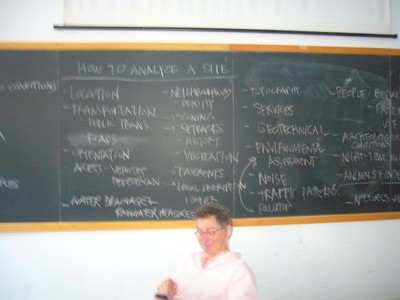 HOW TO ANALYZE A SITE
- LOCATION
- TRANSPORTATION
PUBLIC TRANS.
ROADS
- ORIENTATION
ACCESS - VEHICLES
PEDESTRIAN
- WATER DRAINAGE &
RAINWATER MEASURES
- NEIGHBORHOOD
DENSITY
- ZONING
- SETBACKS
- HISTORY
- VEGETATION
- EASEMENTS
- LEGAL DESCRIPTION
- TOPOGRAPHY
- SERVICES
- GEOTECHNICAL
- ENVIRONMENTAL
ASSESSMENT
- NOISE
- TRAFFIC PATTERNS
- POLLUTION
- PEOPLE
- ARCHAEOLOGICAL
CONDITIONS
- NIGHT-TIME
- ANIMALS +